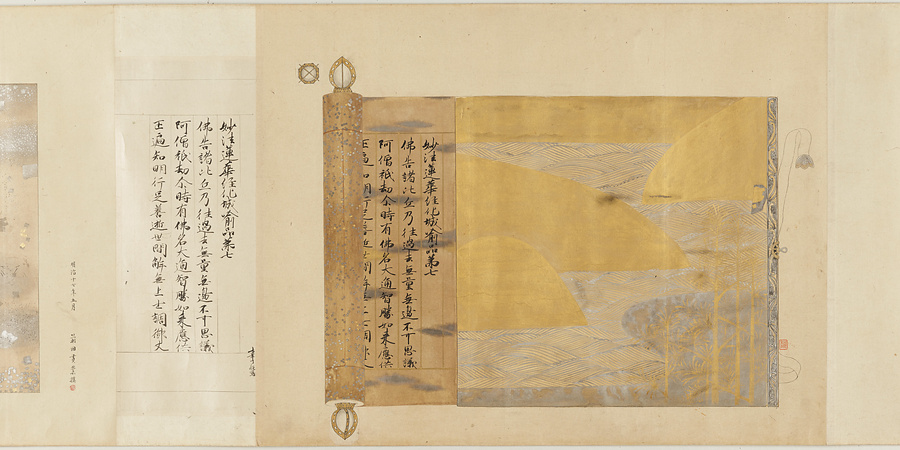 妙法蓮華經化城喩品第七
佛告諸比丘乃往過去無量無邊不可思議
阿僧祇劫尒時有佛名大通智勝如来應供
正遍知明行足善逝世間解無上士調御丈
妙法蓮華經化城喩品第七
佛告諸比丘乃往過去無量無邊不可思議
阿僧祇劫尒時有佛名大通智勝如来應供
正遍知明行足善逝世間解無上士調御丈
明治十七年五月